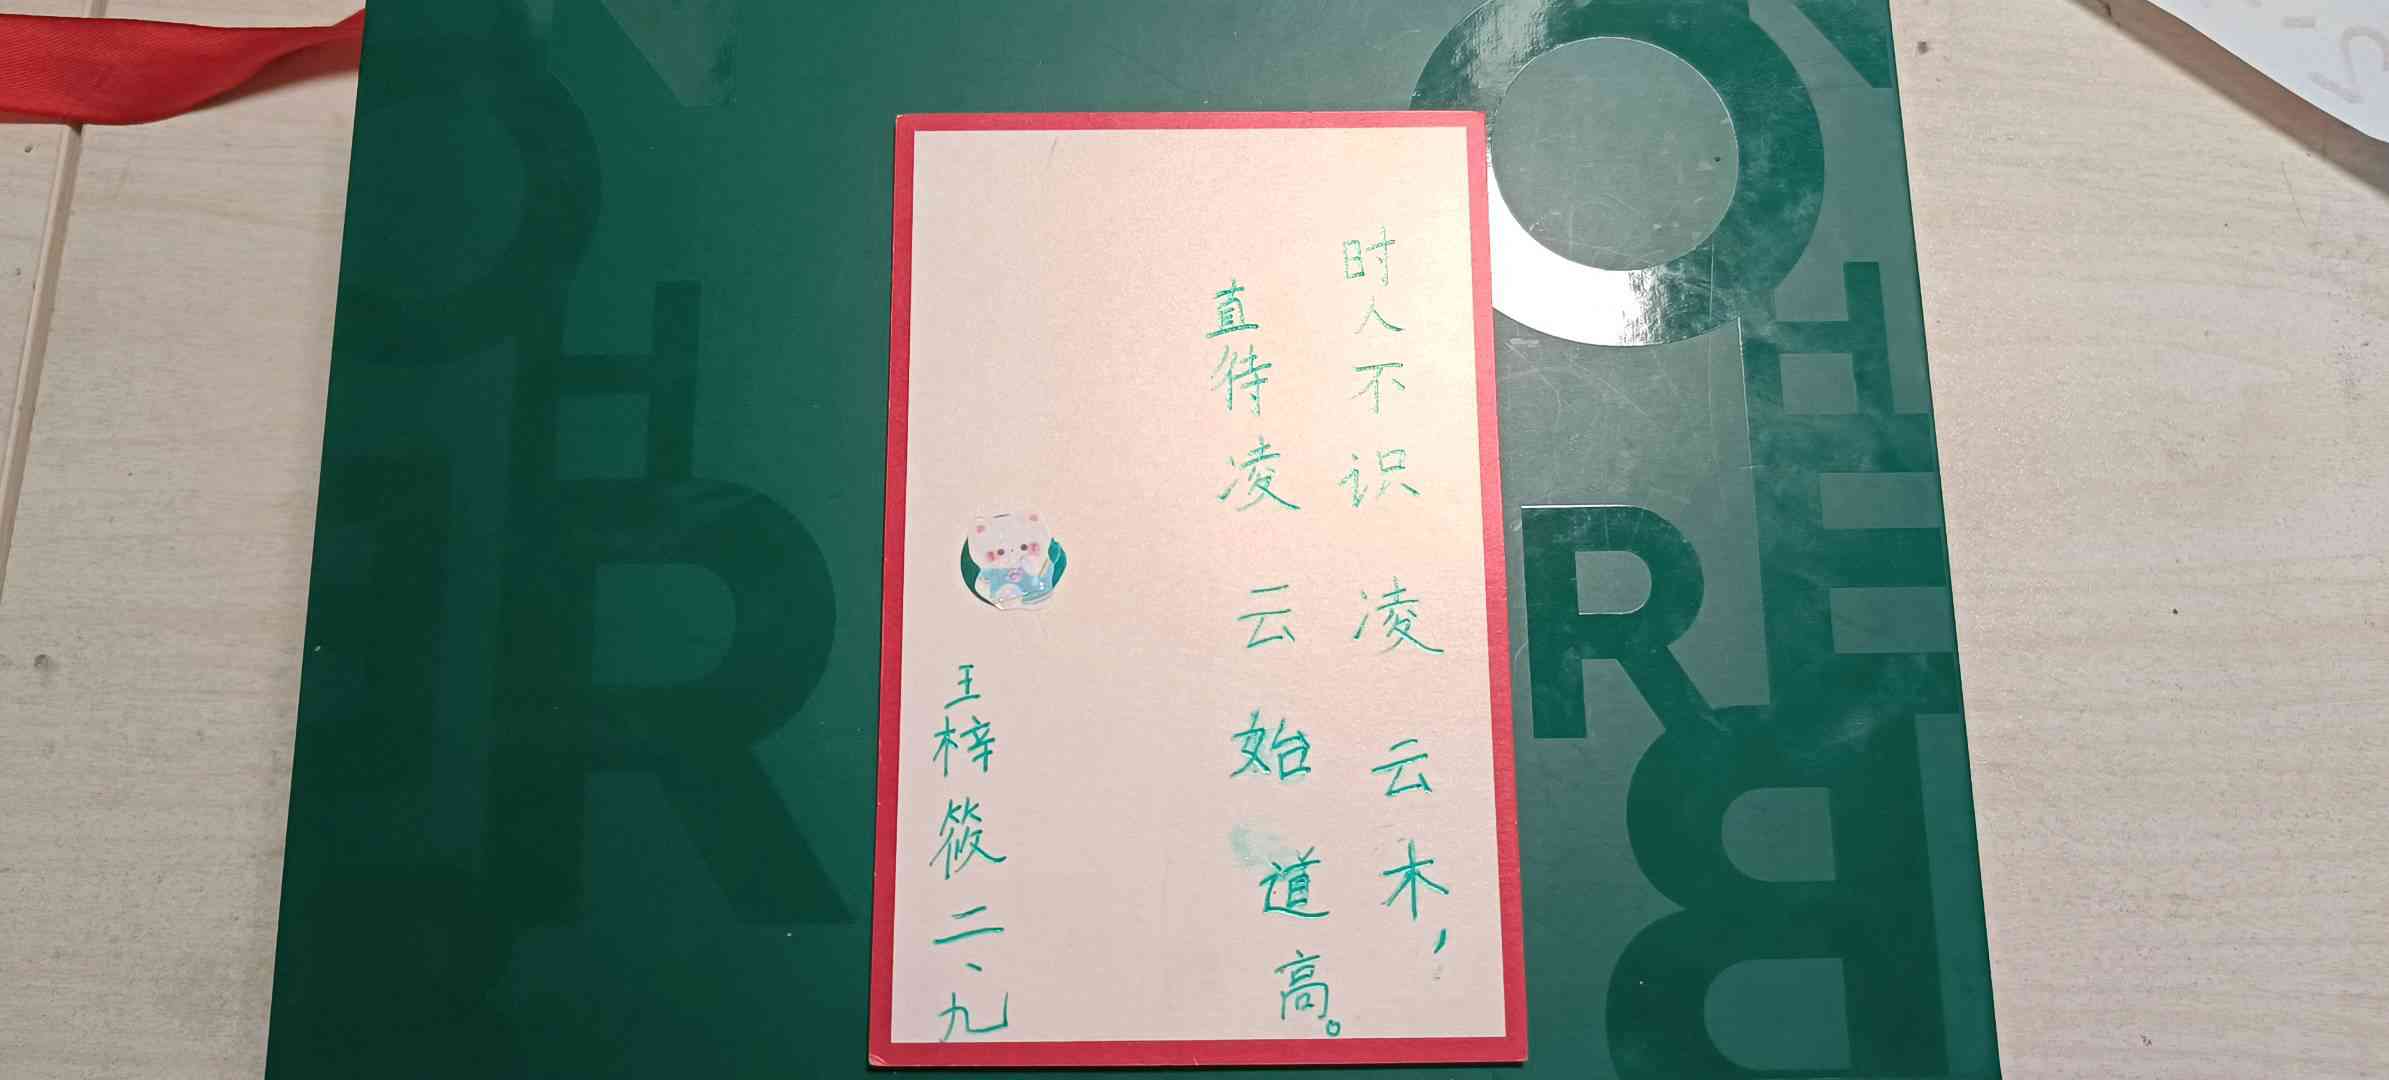 时人不识凌云木，
直待凌云始道高。
王梓筱二、九
O
H
R
H
E
R
B